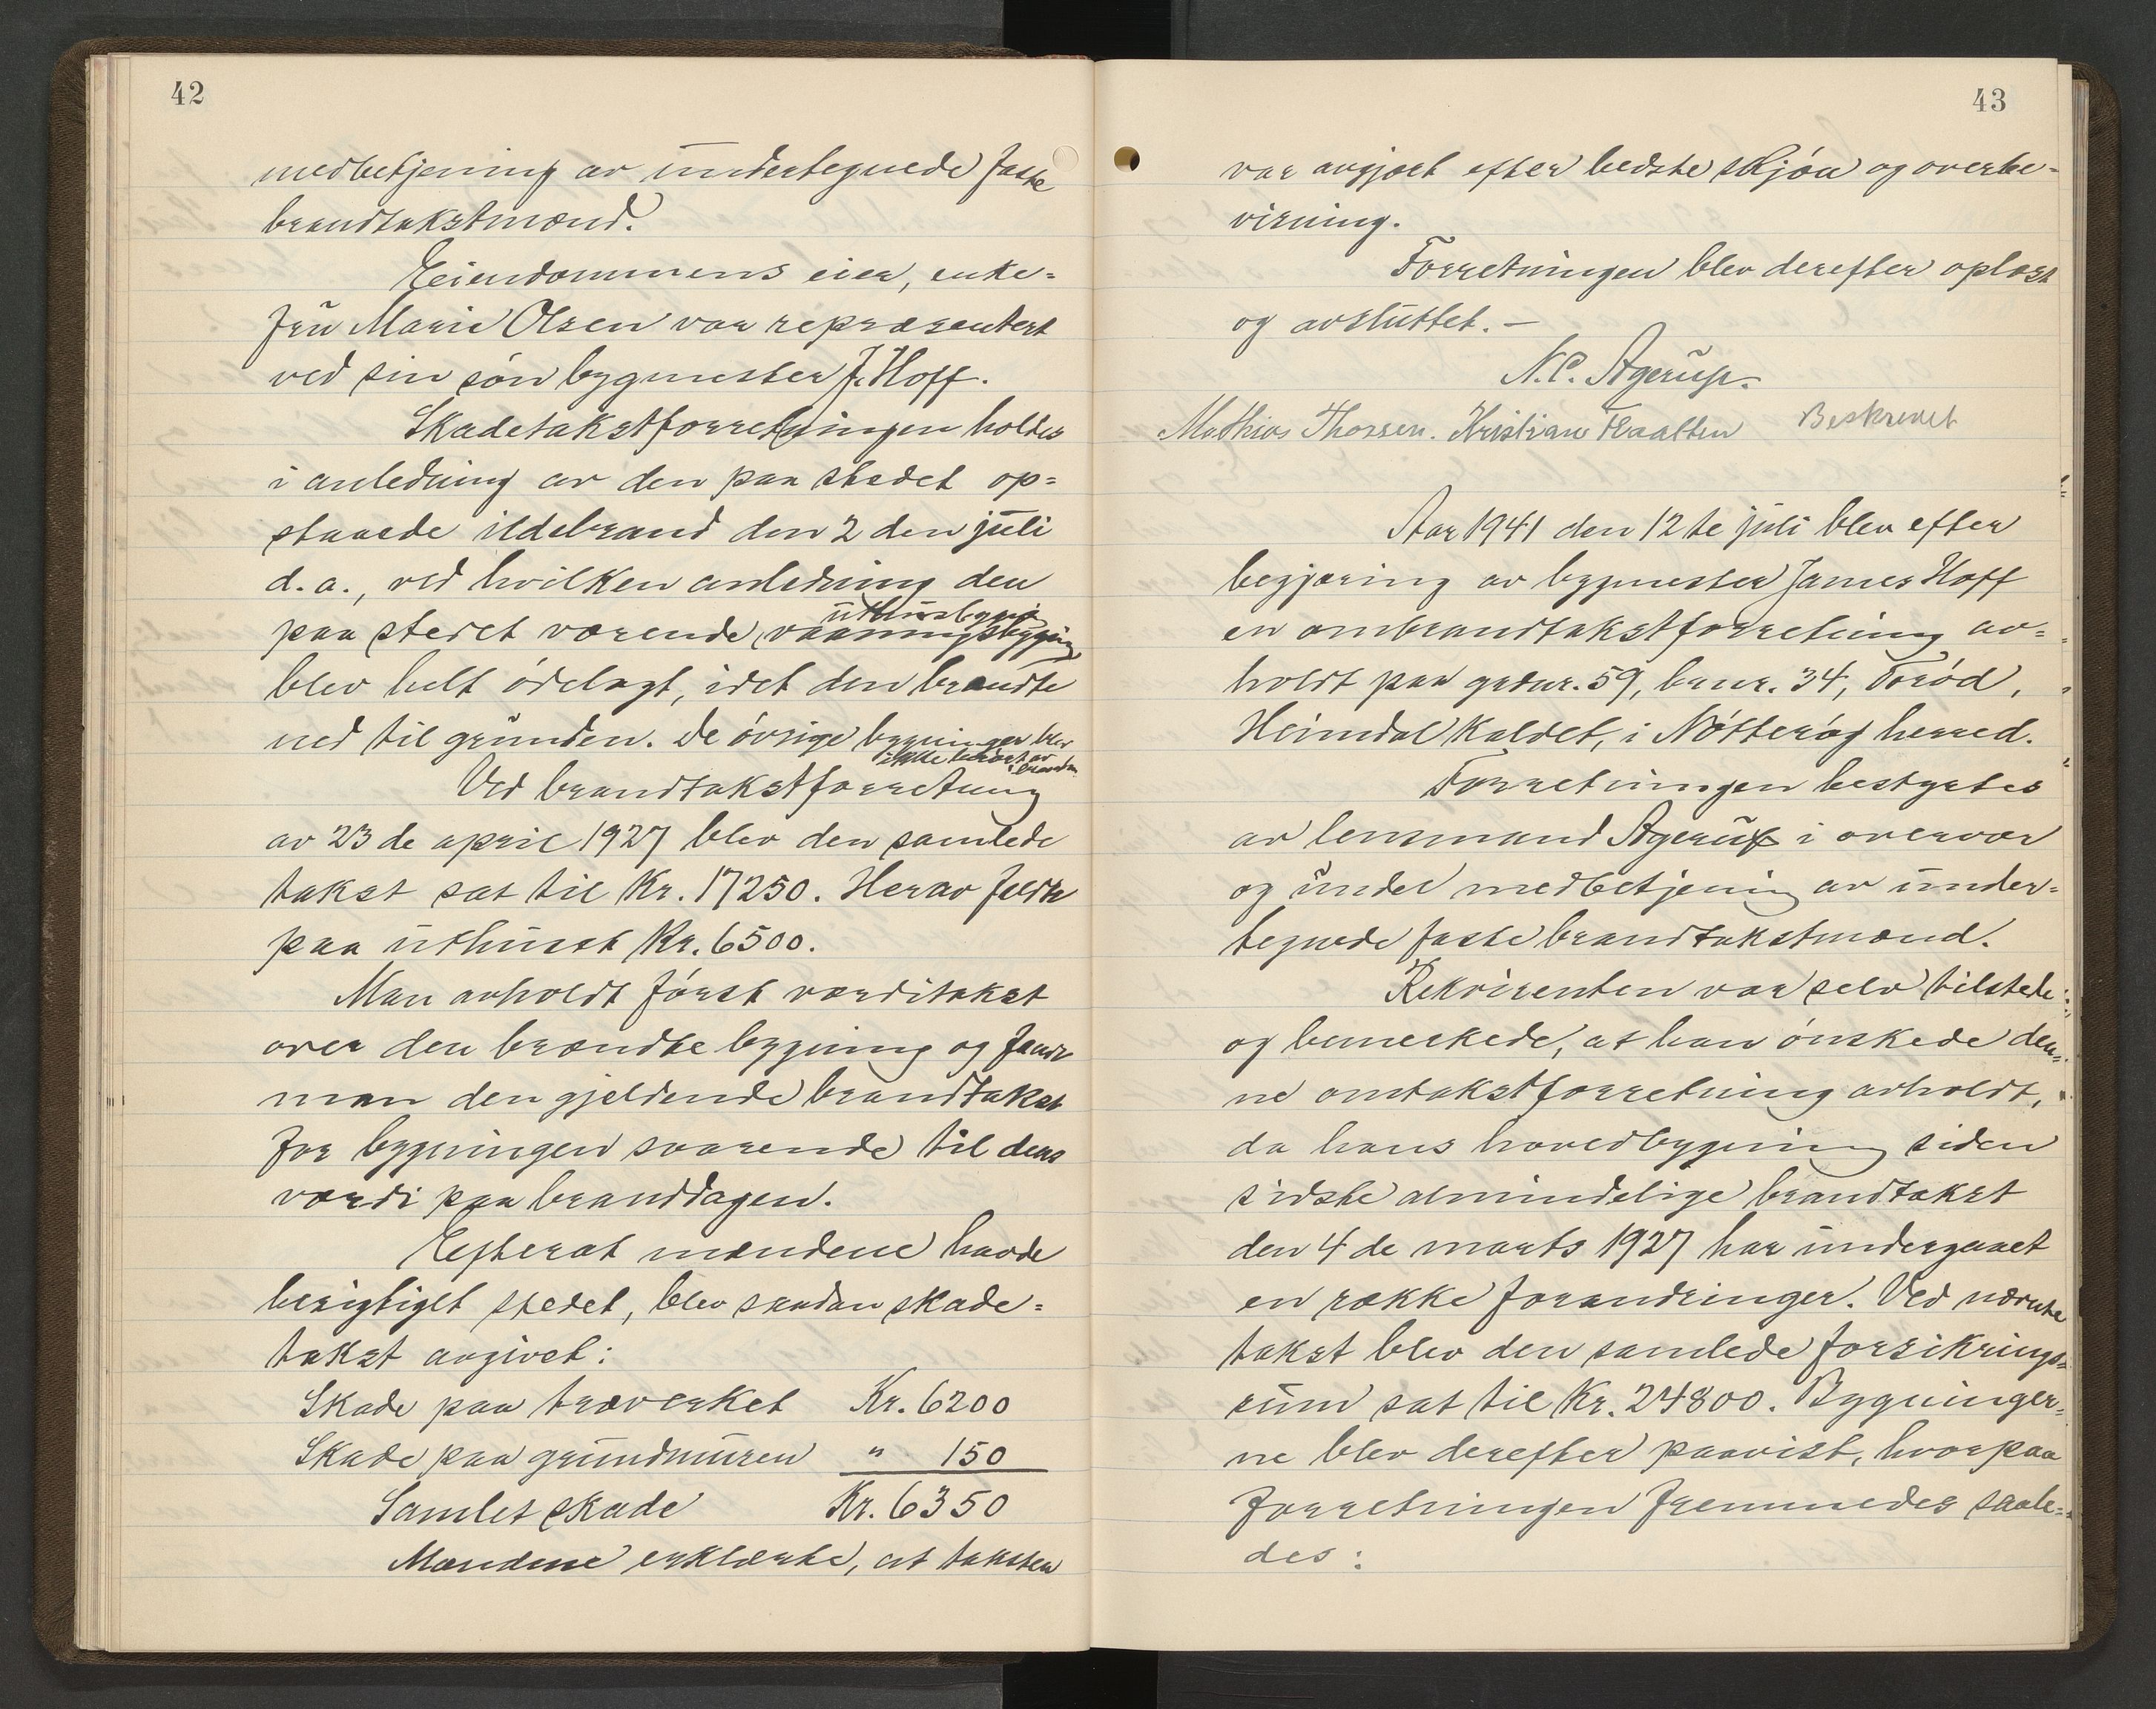 42
medbetjening av undertegnede faste
brandtakstmænd.
Eiendommens eier, enke=
fru Marie Olsen var repræsentert
ved sin søn bygmester J. Hoff.
Skadetakstforretningen holdes
i anledning av den paa stedet op=
staaede ildebrand den 2 den juli
d. a., ved hvilken anledning den
uthusbygn.
paa stedet værende vaaningsbygning
blev helt ødelagt, idet den brændte
ned til grunden. De øvrige bygninger blev
ikke berørt av
branden
Ved brandtakstforretning
av 23 de april 1927 blev den samlede
takst sat til Kr. 17250. Herav faldt
paa uthuset Kr. 6500.
Man avholdt først værditakst
over den brændte bygning og fandt
man den gjeldende brandtakst
for bygningen svarende til dens
værdi paa branddagen.
Efterat mændene havde
besigtiget stedet, blev saadan skade=
takst avgivet:
Skade paa træverket Kr. 6200
Skade paa grundmuren " 150
Samlet skade Kr. 6350
Mændene erklærte, at taksten
43
var avgjort efter bedste skjøn og overbe=
visning.
Forretningen blev derefter oplæst
og avsluttet. —
N. C. Agerup.
Mathias Thorsen. Kristian Flaatten Beskrevet
Aar 1941 den 12 te juli blev efter
begjæring av bygmester James Hoff
en ombrandtakstforretning av=
holdt paa grdnr. 59, brnr. 34, Torød,
Heimdal kaldet, i Nøtterøy herred.
Forretningen bestyrtes
av lensmand Agerup i overvær
og under medbetjening av under=
tegnede faste brandtakstmænd.
Rekvirenten var selv tilstede
og bemerkede, at han ønskede den=
ne omtakstforretning avholdt,
da hans hovedbygning siden
sidste almindelige brandtakst
den 4 de marts 1927 har undergaaet
en række forandringer. Ved nævnte
takst blev den samlede forsikrings=
sum sat til Kr. 24800. Bygninger=
ne blev derefter paavist, hvorpaa
forretningen fremmedes saale=
des: